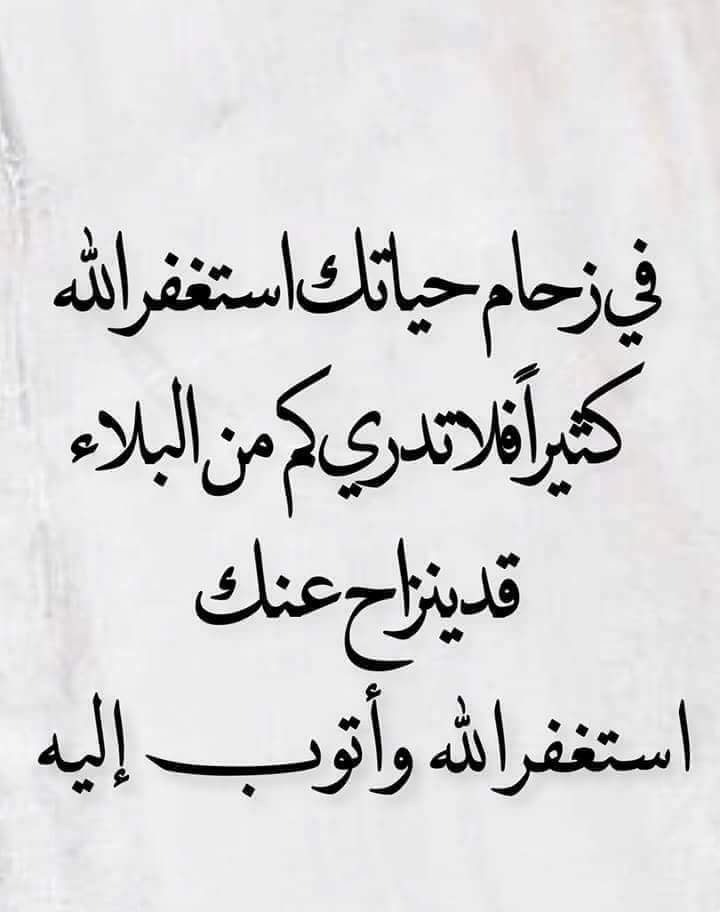 في زحام حياتك استغفر الله
كثيراً فلا تدري كم من البلاء
قد ينزاح عنك
استغفر الله وأتوب إليه